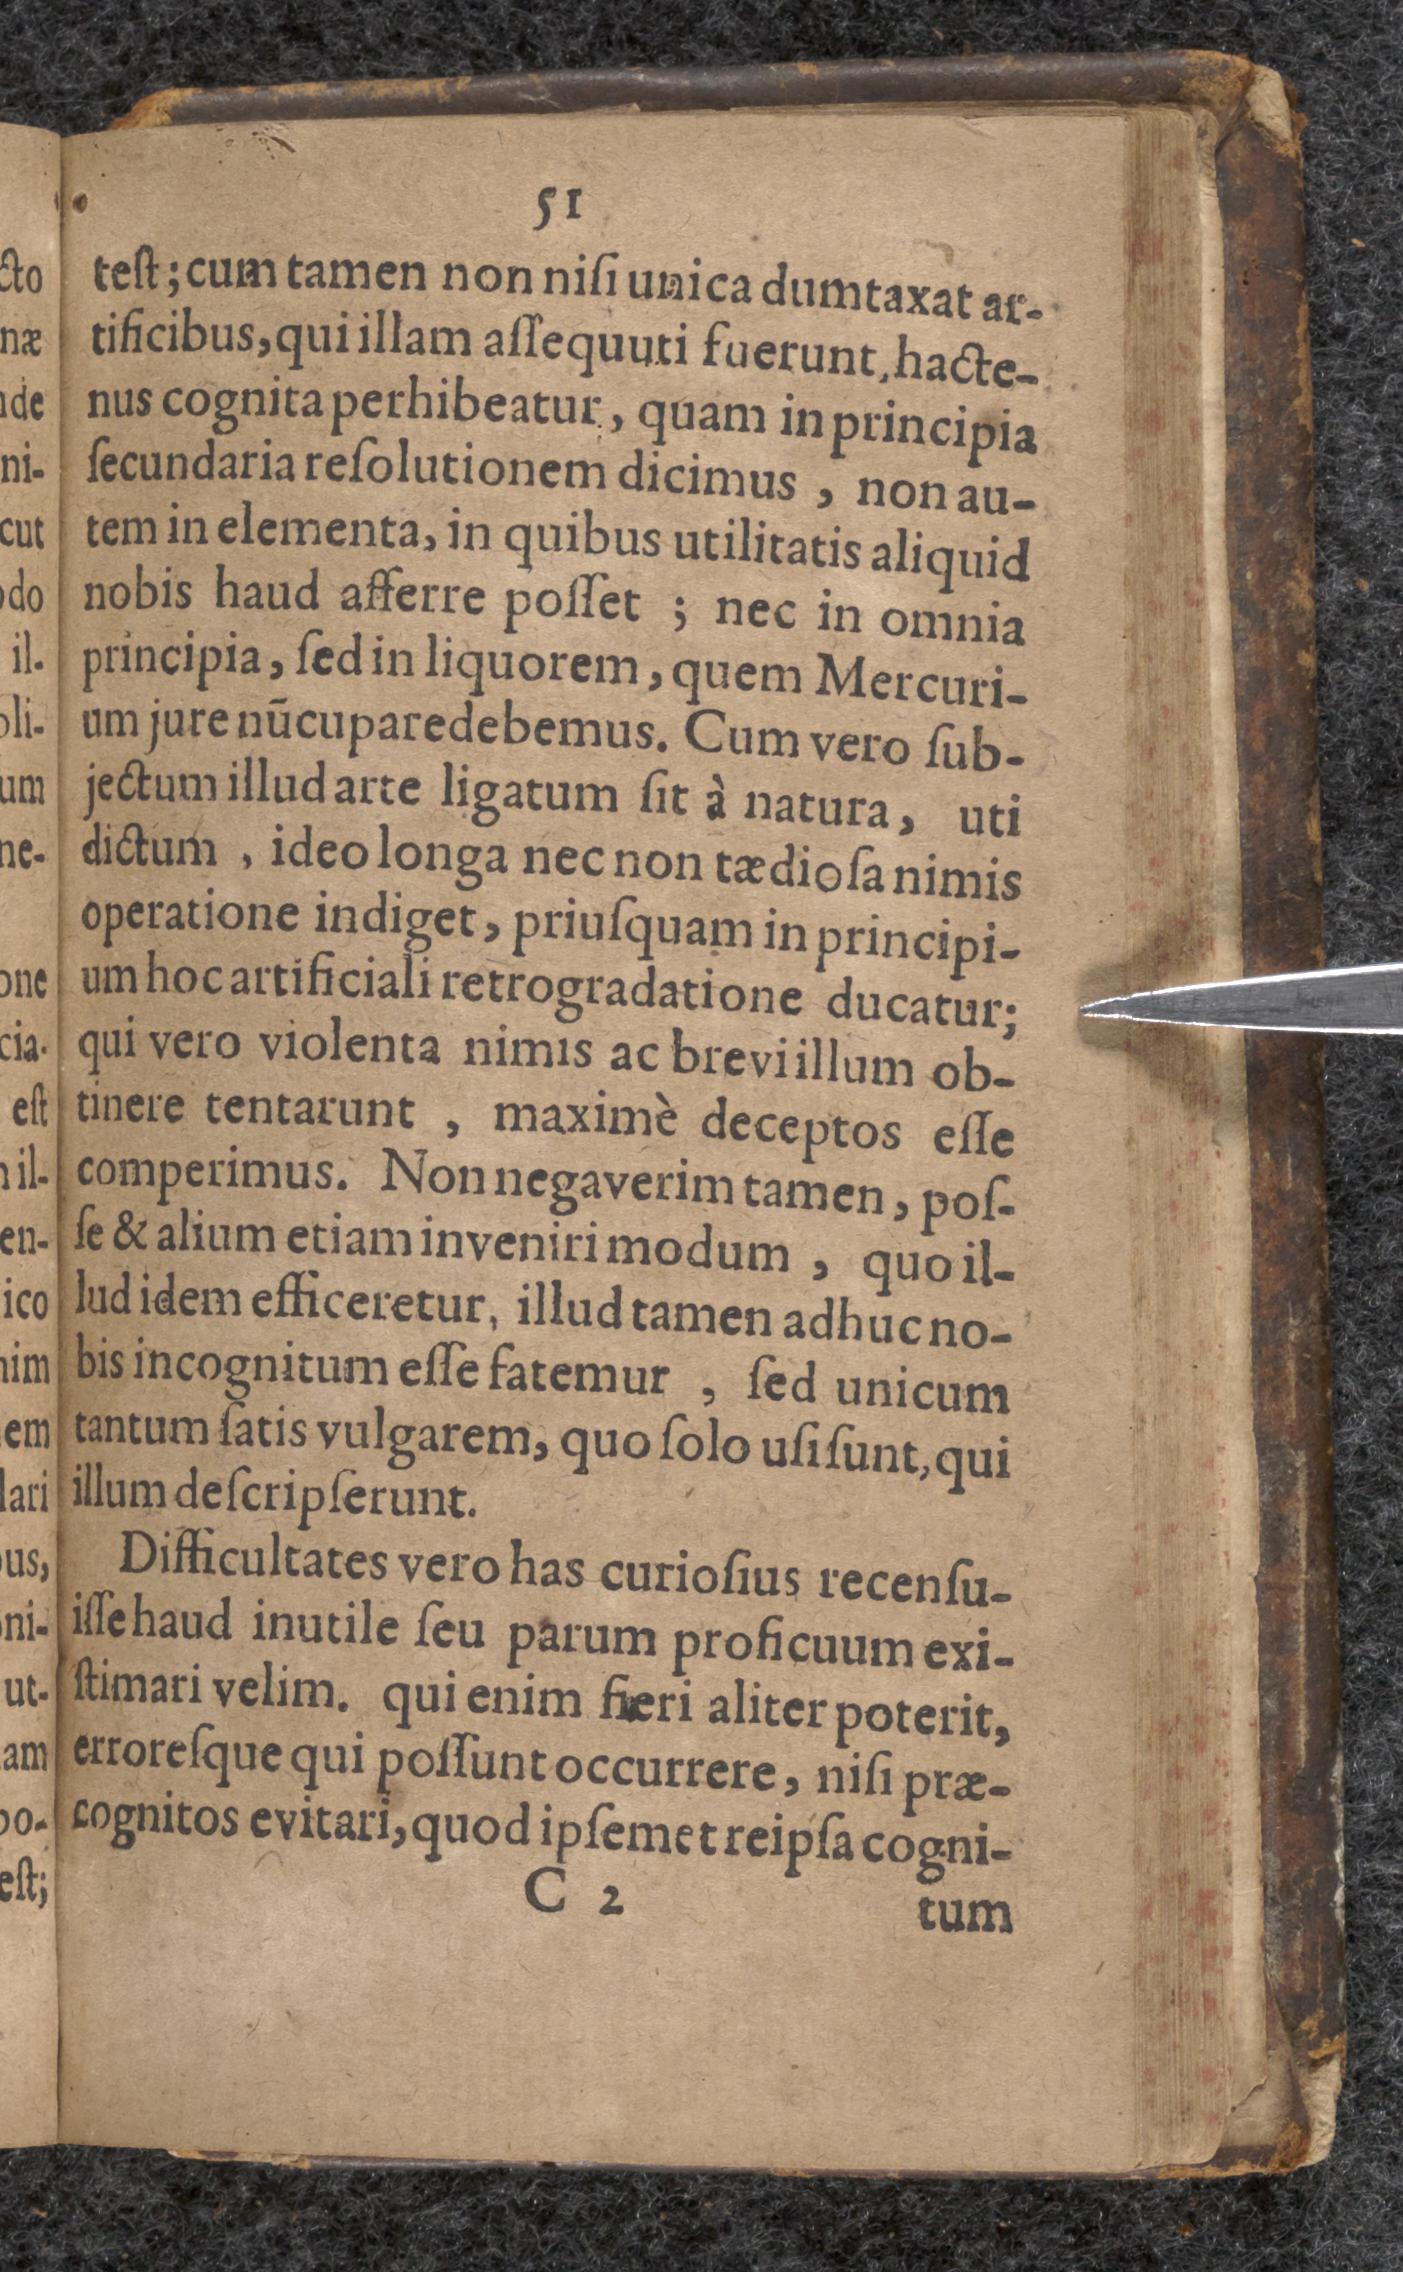 51
teſt; cum tamen non niſi unica dumtaxat ar-
tificibus, qui illam aſſequuti fuerunt, hacte-
nus cognita perhibeatur, quam in principia
ſecundaria reſolutionem dicimus, non au-
tem in elementa, in quibus utilitatis aliquid
nobis haud afferre poſſet; nec in omnia
principia, ſed in liquorem, quem Mercuri-
um jure nūcupare debemus. Cum vero ſub-
jectum illud arte ligatum ſit à natura, uti
dictum, ideo longa nec non tædioſa nimis
operatione indiget, priuſquam in principi-
um hoc artificiali retrogradatione ducatur;
qui vero violenta nimis ac brevi illum ob-
tinere tentarunt, maximè deceptos eſſe
comperimus. Non negaverim tamen, poſ-
ſe & alium etiam inveniri modum, quo il-
lud idem efficeretur, illud tamen adhuc no-
bis incognitum eſſe fatemur, ſed unicum
tantum ſatis vulgarem, quo ſolo uſi ſunt, qui
illum deſcripſerunt.
Difficultates vero has curioſius recenſu-
iſſe haud inutile ſeu parum proficuum exi-
ſtimari velim. qui enim fieri aliter poterit,
erroreſque qui poſſunt occurrere, niſi præ-
cognitos evitari, quod ipſemet reipſa cogni-
C 2 tum